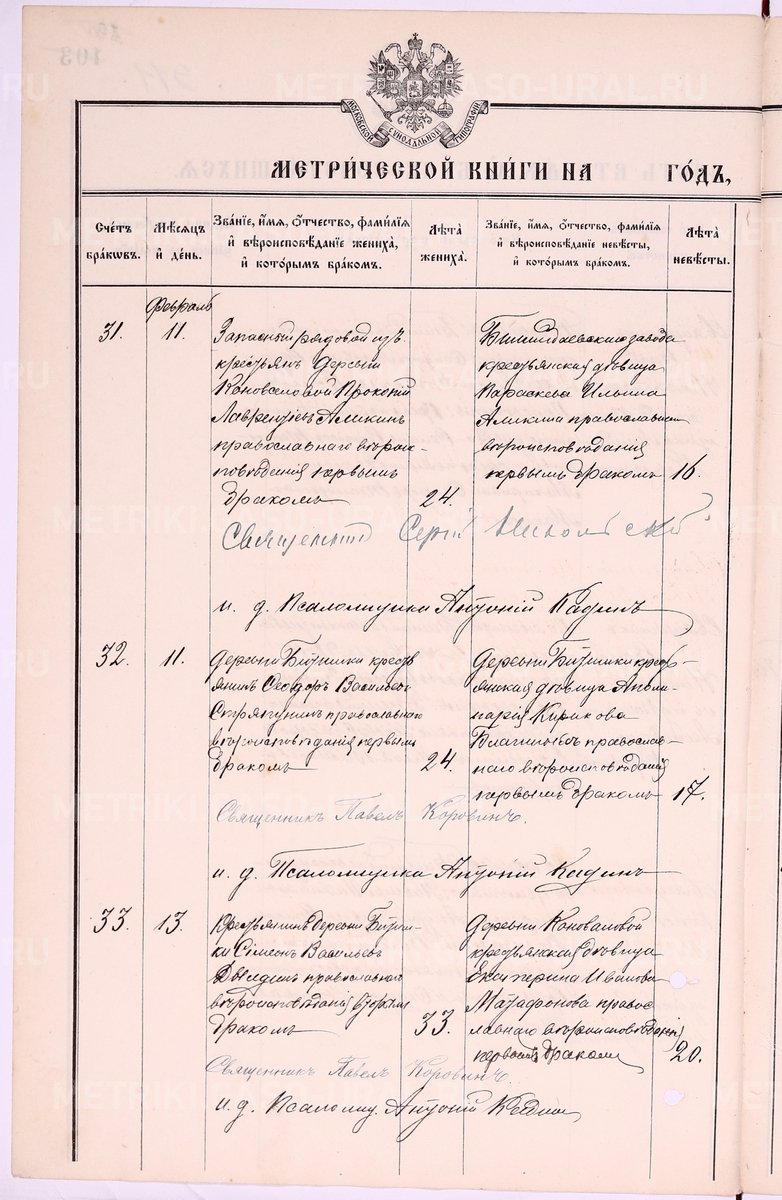 103
МОСКОВСКОЙ СѴНОДАЛЬНОЙ ТИПОГРАФІИ
МЕТРИЧЕСКОЙ КНИГИ НА ГОДЪ,
Счетъ браковъ.
Мѣсяцъ и день.
Званіе, имя, отчество, фамилія и вѣроисповѣданіе жениха, и которымъ бракомъ.
Лѣта жениха.
Званіе, имя, отчество, фамилія и вѣроисповѣданіе невѣсты, и которымъ бракомъ.
Лѣта невѣсты.
Февраль
31.
11.
Запасный рядовой изъ
крестьянъ деревни
Коноваловой Прокопій
Лаврентіевъ Аликинъ
православнаго вѣроис-
повѣданія первымъ
бракомъ
24.
Билимбаевскаго завода
крестьянская дѣвица
Параскева Ильина
Аликина православнаго
вѣроисповѣданія
первымъ бракомъ
16.
Священникъ Сергій Никольскій
и. д. Псаломщика Антоній Кадинъ
32.
11.
Деревни Битимки кресть
янинъ Ѳеодоръ Васильевъ
Стрягунинъ православнаго
вѣроисповѣданія первымъ
бракомъ
24.
Деревни Битимки кресть-
янская дѣвица Аполи-
нарія Кирикова
православ-
наго вѣроисповѣданія
первымъ бракомъ
17.
Священникъ Павелъ Коровинъ.
и. д. Псаломщика Антоній Кадинъ
33.
13.
Крестьянинъ деревни Битим-
ки Симеонъ Васильевъ
православнаго
вѣроисповѣданія вторымъ
бракомъ
33.
Деревни Коноваловой
крестьянская дѣвица
Екатерина Иванова
Матафонова правос
лавнаго вѣроисповѣданія
первымъ бракомъ
20.
Священникъ Павелъ Коровинъ.
и. д. Псаломщ. Антоній Кадинъ